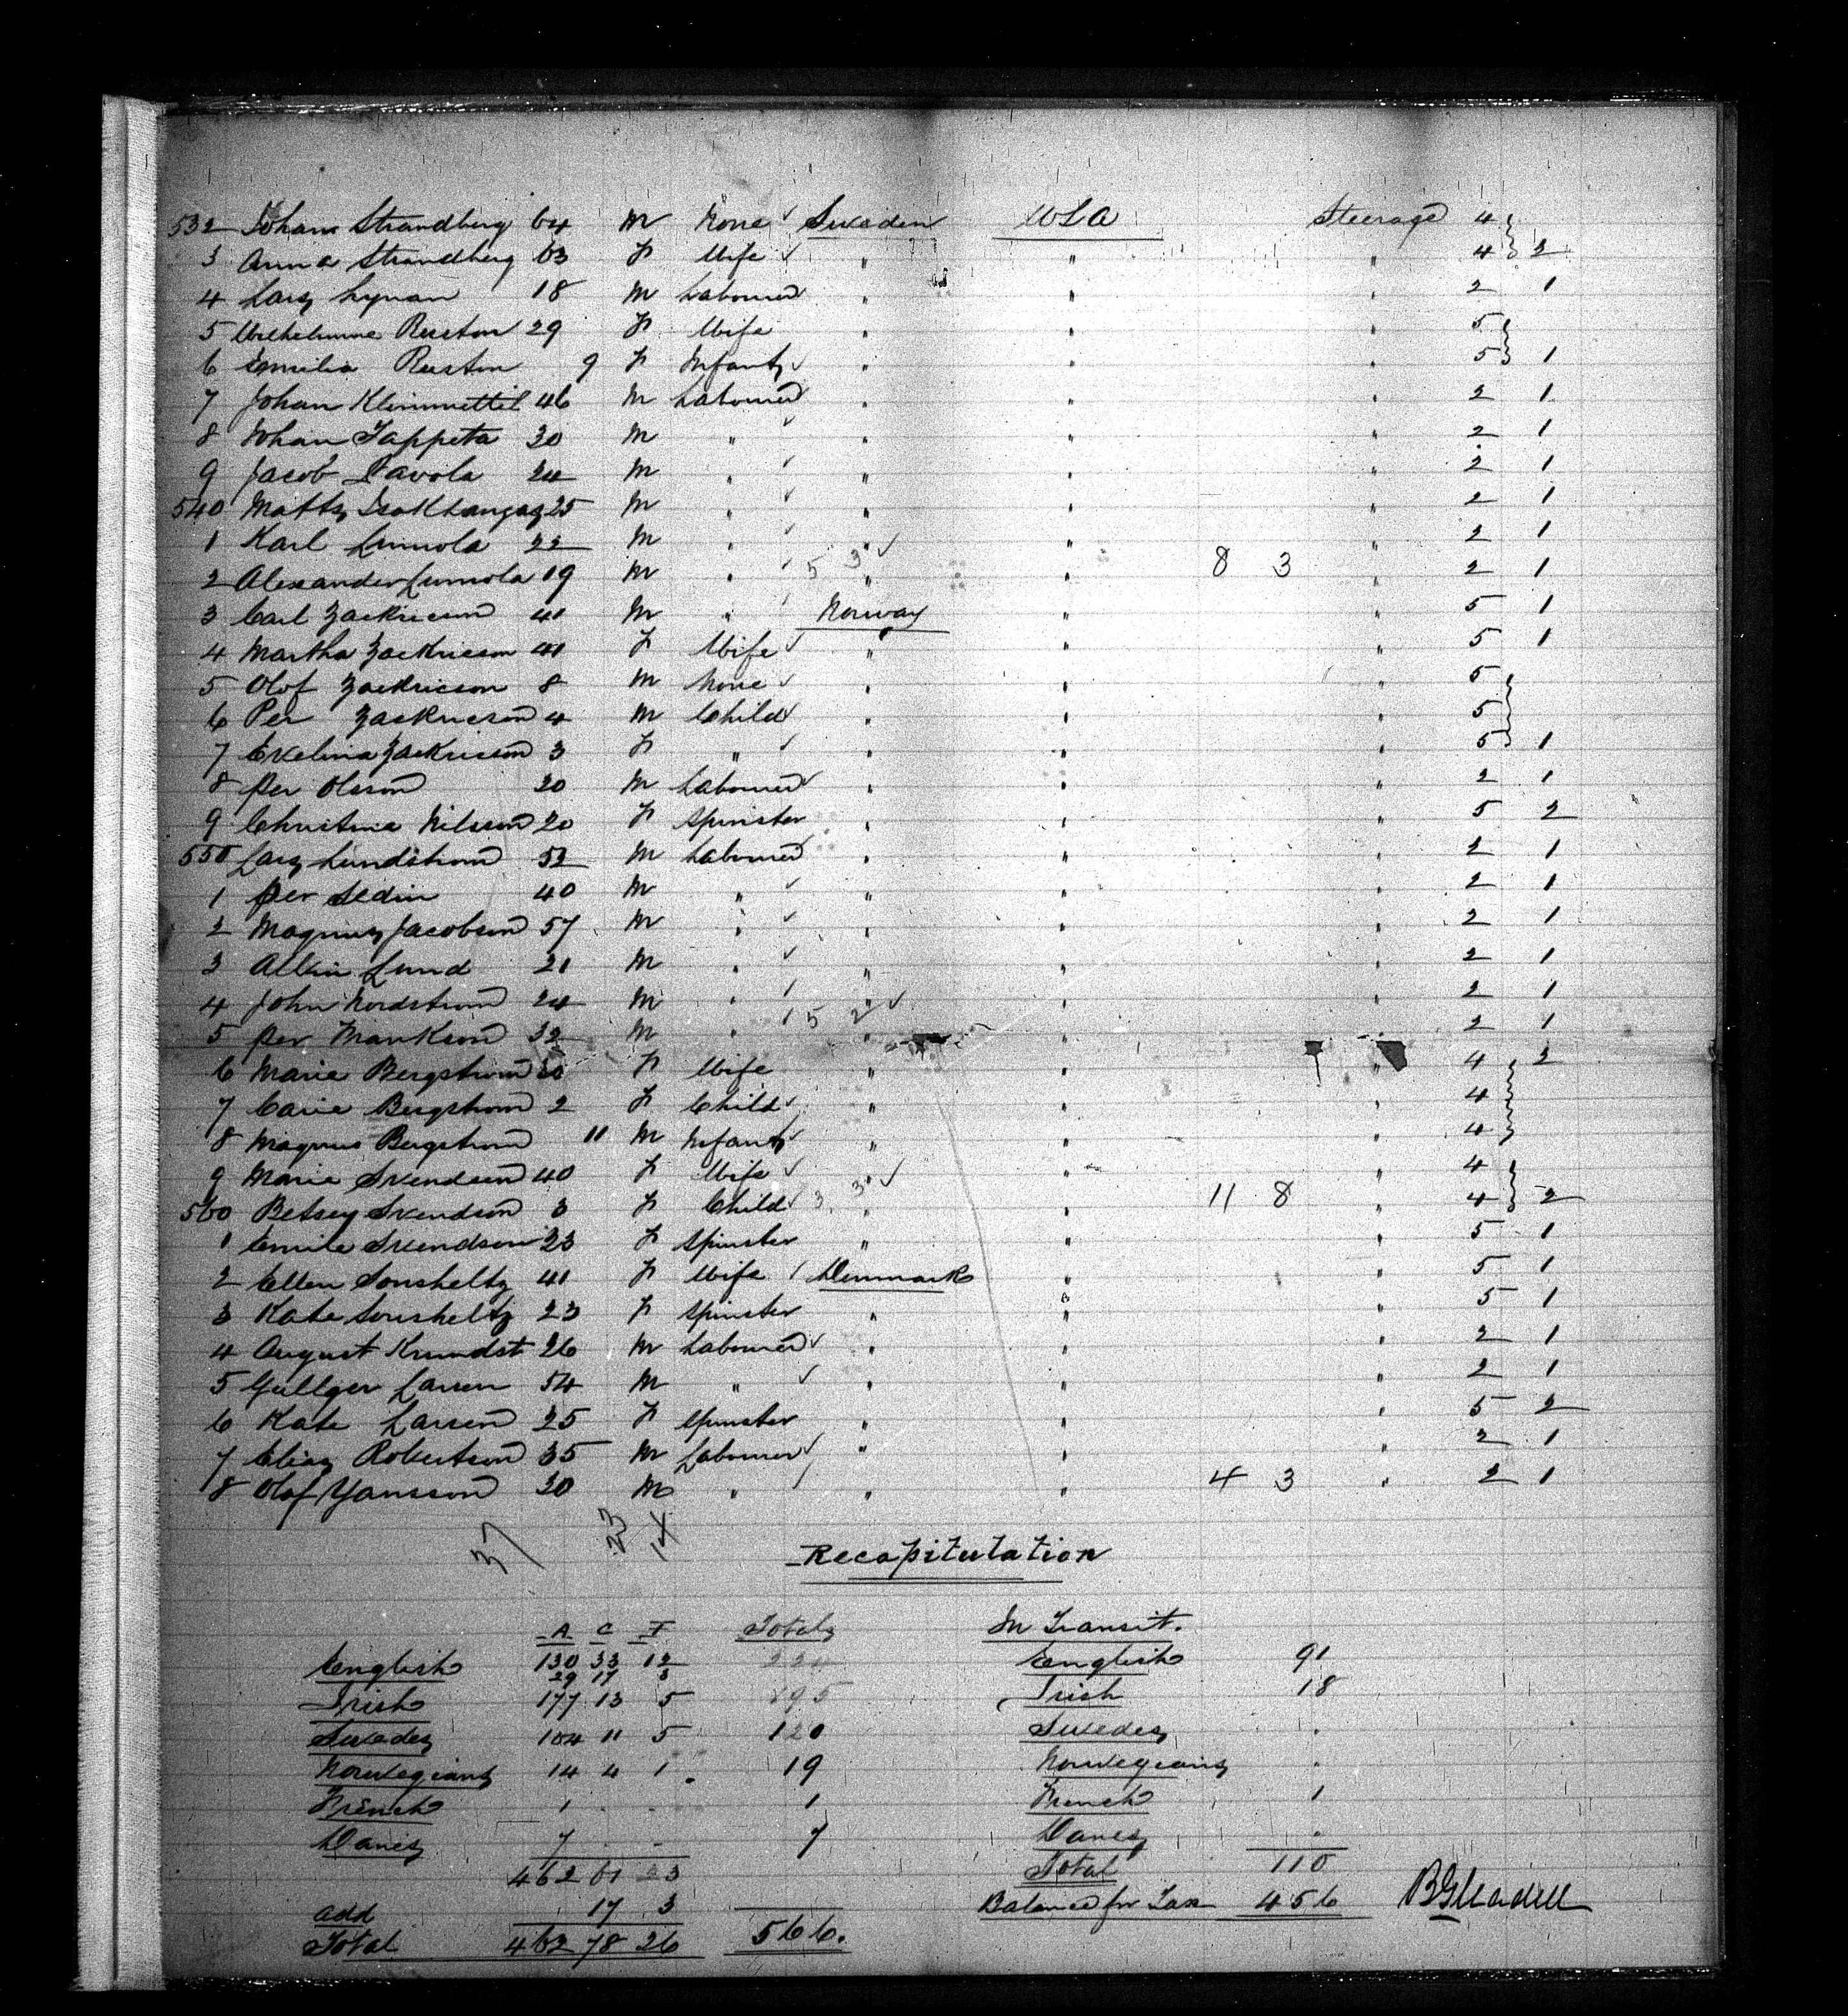 532 Johan Strandberg 64 M None ✓ Sweden USA Steerage 4
3 Anna Strandberg 63 F Wife ✓ " " " 4 2
4 Lars Lyman 18 M Labourer " " " 2 1
5 Wilhelmine Ruston 29 F Wife " " " 5
6 Emilia Ruston 9 F Infant ✓ " " " 5 1
7 Johan 46 M Labourer " " " 2 1
8 Johan Tappeta 30 M " ✓ " " " 2 1
9 Jacob 24 M " ✓ " " " 2 1
540 Matts 25 M " ✓ " " " 2 1
1 Karl Lumola 22 M " ✓ " ✓ " " 2 1
2 Alexander Lumola 19 M " ✓ 5 3 " " 8 3 " 2 1
3 Carl Zackrisson 41 M " ✓ Norway " " 5 1
4 Martha Zackrisson 41 F Wife ✓ " " " 5 1
5 Olof Zackrisson 8 M None ✓ " " " 5
6 Per Zackrisson 4 M Child ✓ " " " 5
7 Evelina Zackrisson 3 F " ✓ " " " 5 1
8 Per Olsson 20 M Labourer ✓ " " " 2 1
9 Christina Nilsson 20 F Spinster " " " 5 2
550 Lars Lundstrom 52 M Labourer " " " 2 1
1 Per Sedin 40 M " ✓ " " " 2 1
2 Magnus Jacobson 57 M " ✓ " " " 2 1
3 Albin Lund 21 M " ✓ " " " 2 1
4 John Nordstrom 24 M " ✓ " ✓ " " 2 1
5 Per Markson 32 M " ✓ 5 2 " " " 2 1
6 Marie Bergstrom 30 F Wife " " " 4 2
7 Carie Bergstrom 2 F Child ✓ " " " 4
8 Magnus Bergstrom 11 M Infant ✓ " " " 4
9 Marie Svendson 40 F Wife ✓ " ✓ " " 4
560 Betsey Svendson 3 F Child ✓ 3 3 " " 11 8 " 4 2
1 Emile Svendson 23 F Spinster " " " 5 1
2 Ellen Sonsheltz 41 F Wife ✓ Denmark " " 5 1
3 Kate Sonsheltz 23 F Spinster " " " 5 1
4 August Krundst 26 M Labourer ✓ " " " 2 1
5 Larsen 54 M " ✓ " " " 2 1
6 Kate Larsen 25 F Spinster " " " 5 2
7 Elias Robertson 35 M Labourer ✓ " " " 2 1
8 Olof Yansson 30 M " ✓ " " 4 3 " 2 1
37 23 14
Recapitulation
A C I Totals In Transit.
English 130 33 12 English 91
29 17 3
Irish 177 13 5 195 Irish 18
Swedes 104 11 5 120 Swedes "
Norwegians 14 4 1 19 Norwegians "
French 1 . . 1 French 1
Danes 7 . - 7 Danes "
462 61 23 Total 110
add 17 3 Balance for Tax 456
Total 462 78 26 566.